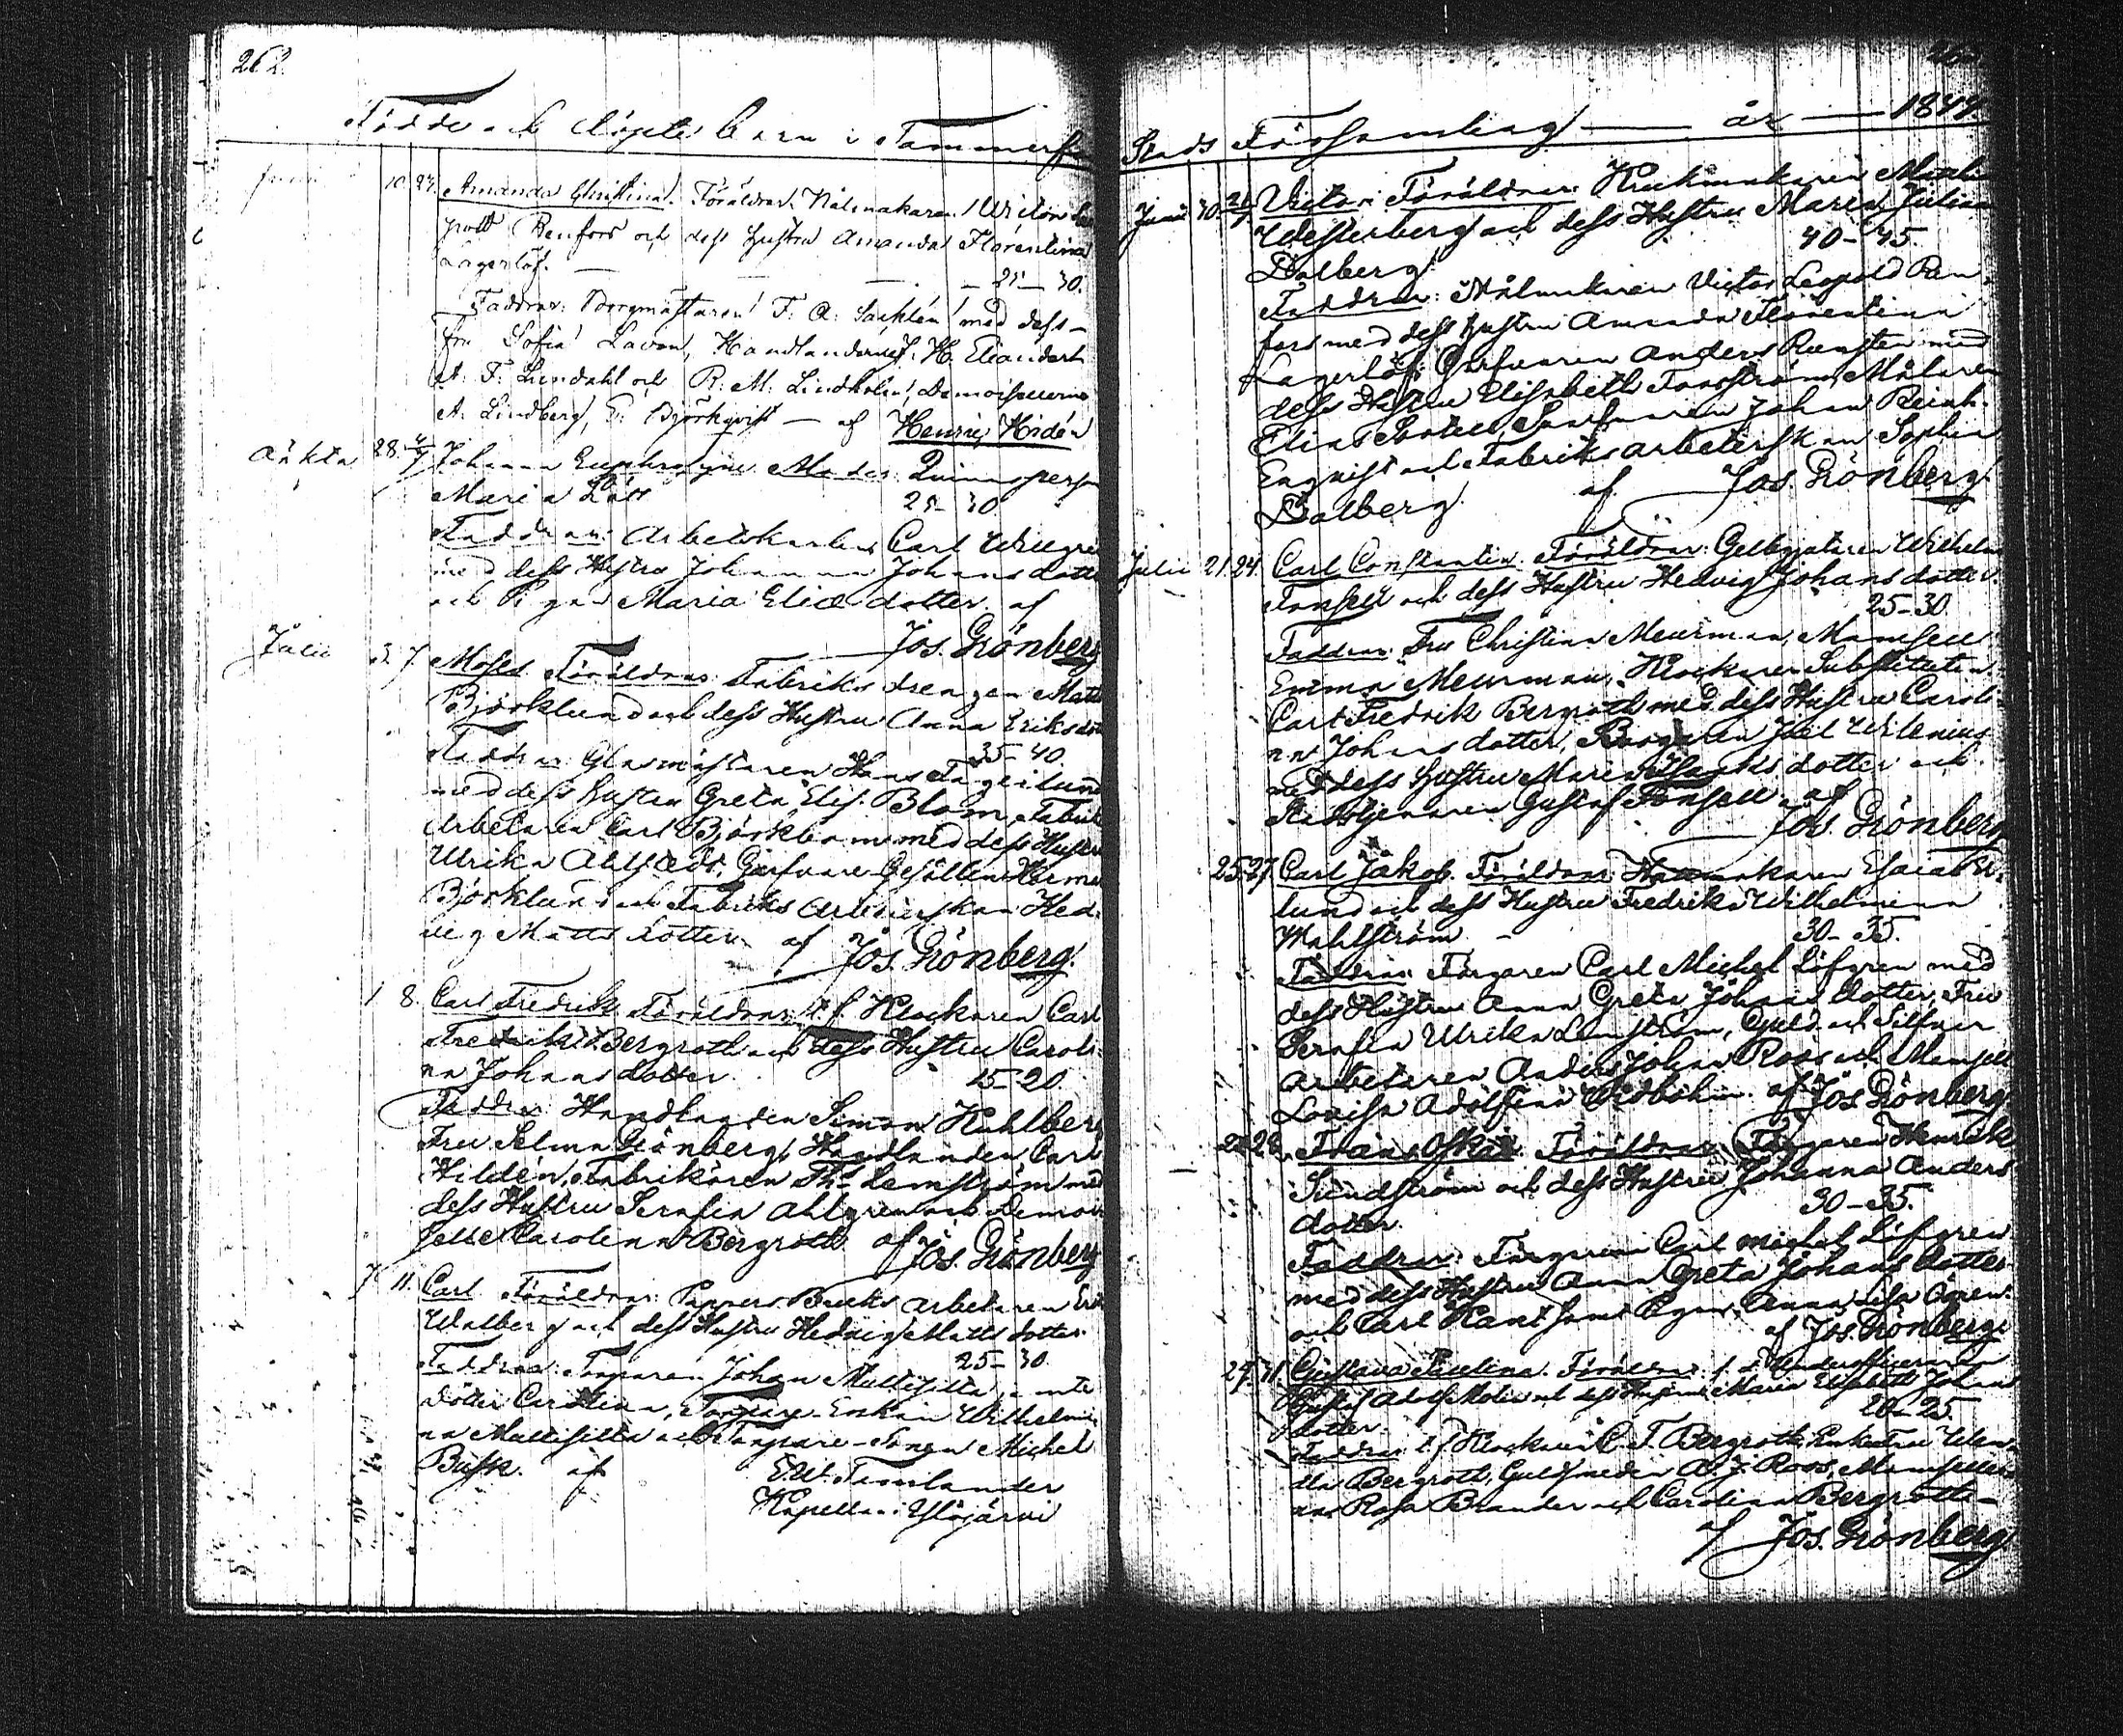 262.
Födde och döpte barn i Tammerfors
Junii 10. 24. Amanda Christina. Föräldrar: Nålmakaren Victor Leo-
pold Renfors och dess hustru Amanda Florentina
Lagerlöf. 25-30.
Faddrar: Borgmästaren F. A. Sacklén med dess
fru Sofia Lavon, Handlanderne J. H. Eliander
A. F. Lundahl och R. M. Lindholm, Demoisellerne
A. Lindberg, Björkqvist af Henric Hidén
oäkta 28. Johanna Euphrosyne Moder: Qvinnsperson
Maria Lätt 25-30
Faddrar: Arbetskarlen Carl Willgre
med dess Hustru Johanna Johansdotter
och Pigan Maria Eliæ dotter. af
Jos. Grönberg
Julii 3. 7. Moses Föräldrar: Fabriks drengen Matts
Björklund och dess Hustru Anna Eriksdotter
35-40.
Faddrar: Glasmästaren Hans Fagerlund
med dess hustru Greta Elis. Blom, Fabriks
Arbetaren Carl Björkbom med dess Hustru
Ulrika Ahlstedt, Garfvare Gesällen Herman
Björklund och Fabriks Arbeterskan Hed-
vig Matts dotter af Jos. Grönberg.
1 8. Carl Fredrik Föräldrar: t.f. Klockaren Carl
Fredrik Bergroth och dess Hustru Caroli-
na Johans dotter. 15-20
Faddrar: Handlanden Simon Kahlberg
Fru Selma Grönberg, Handlanden Carl
Hildén, Fabrikören Th. Lemström med
dess Hustru Serafia Ahlgren och Demoi-
selle Carolina Bergroth. af Jos. Grönberg
7 11. Carl Föräldrar: Pappers Bruks arbetaren Erik
Walberg och dess Hustru Hedvig Matts dotter.
25-30.
Faddrar: Torparen Johan Mattisilta,
dotter Carolina, Torpare Enkan Wilhelmi-
na Mattisilta och Torpare-Sonen Michel
Busk. af E. W. Tamlander
Kapellan i Ylöjärvi
Stads Församling år 1844.
Junii 30. Victor. Föräldrar: Kruk­makaren Matts
Westerberg och dess Hustru Maria Juliana
Dalberg. 40-45.
Faddrar: Nålmakaren Victor Leopold Ren-
fors med dess hustru Amanda Florentina
Lagerlöf, Garfvaren Anders Runsten med
dess Hustru Elisabeth Forsström, Målaren
Elias Johan Reink-
Engqvist och Fabriks arbeterskan Sophia
Dalberg. af Jos. Grönberg
Julii 21. 24. Carl Constantin. Föräldrar: Gelbgjutaren Wilhelm
Fonsell och dess Hustru Hedvig Johansdotter.
25-30.
Faddrar: Fru Christina Meurman, Mamsell
Emma Meurman, Klockare Substituten
Carl Fredrik Bergroth med dess Hustru Caroli-
na Johans dotter, Borgaren Joel Wilenius
med dess hustru Maria dotter och
Gustaf Fonsell. af
Jos. Grönberg
25. 27. Carl Jakob. Föräldrar: Hattmakaren Esaias
lund och dess Hustru Fredrika Wilhelmina
Wahlström 30-35.
Faddrar: Färgaren Carl Michel Löfgren med
dess Hustru Anna Greta Johans dotter, Fru
Serafia Ulrika Lemström, Guld och Silfver
arbetaren Anders Johan Roos och Mamsell
Lovisa Adolfina af Jos. Grönberg
28. Frans Oskar. Föräldrar: Färgaren Henrik
Sundström och dess Hustru Johanna Anders
dotter. 30-35.
Faddrar: Färgaren Carl Michel Löfgren
med dess Hustru Anna Greta Johans dotter
och Carl Anna Lisa
af Jos. Grönberg
29. 31. Gustava Paulina. Föräldrar: f.d. Underofficeren
Gustaf Adolf Molin och dess Hustru Maria Elisabeth Johans
dotter. 20-25.
Faddrar: t.f. Klockaren C. F. Bergroth, Enkefru Wen-
dla Bergroth, Guldsmeden A. J. Roos, Mamseller-
na Rosa Brander och Carolina Bergroth
af Jos. Grönberg